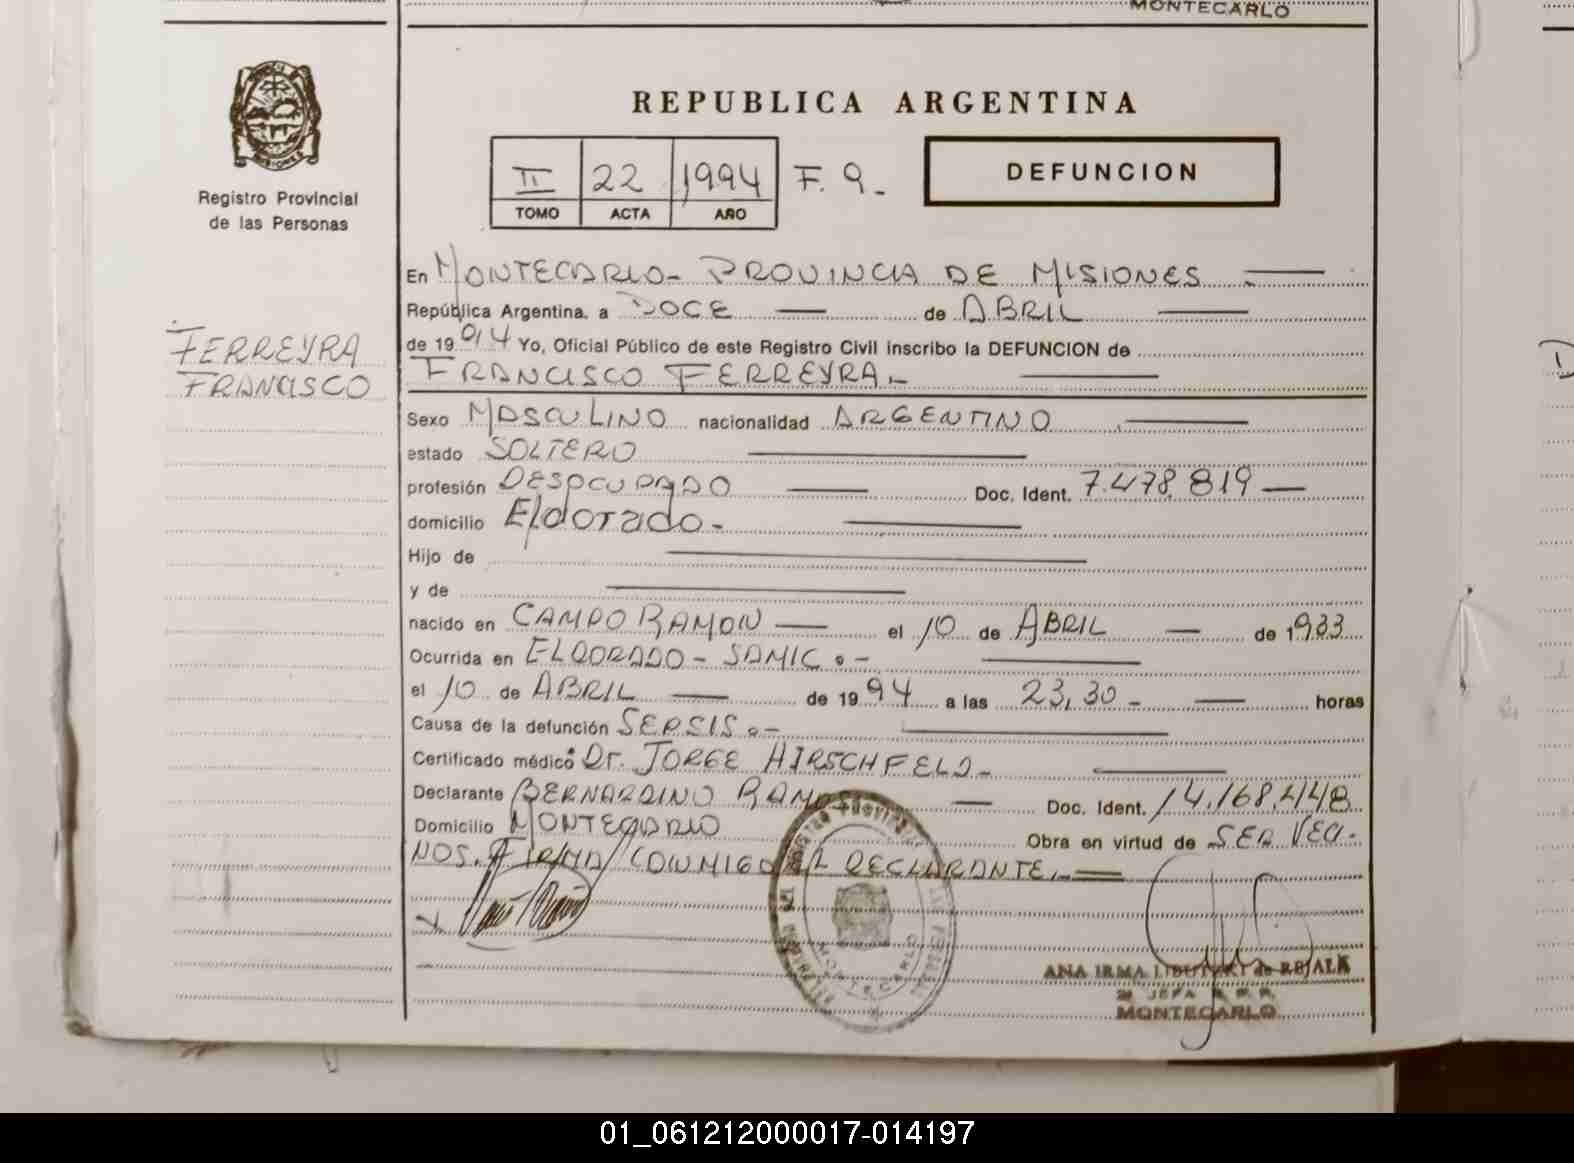 MONTECARLO
REPUBLICA ARGENTINA
II 22 1994 F. 9.-
TOMO ACTA AÑO
DEFUNCION
MISIONES
Registro Provincial
de las Personas
FERREYRA
FRANCISCO
En MONTECARLO- PROVINCIA DE MISIONES.
República Argentina, a DOCE de ABRIL
de 1994 Yo, Oficial Público de este Registro Civil inscribo la DEFUNCION de
FRANCISCO FERREYRA.-
Sexo MASCULINO nacionalidad ARGENTINO
estado SOLTERO
profesión DESOCUPADO Doc. Ident. 7.478.819
domicilio Eldorado.-
Hijo de
y de
nacido en CAMPO RAMON el 10 de ABRIL de 1933
Ocurrida en ELDORADO- SAMIC.-
el 10 de ABRIL de 1994 a las 23,30- horas
Causa de la defunción SEPSIS.-
Certificado médico Dr. JORGE HIRSCHFELD-
Declarante BERNARDINO Doc. Ident. 14.168.448
Domicilio MONTECARLO Obra en virtud de SER VECI-
NOS. FIRMA CONMIGO EL DECLARANTE.-
MONTECARLO
ANA IRMA de REJALA
JEFA R. P. P.
MONTECARLO
01_061212000017-014197